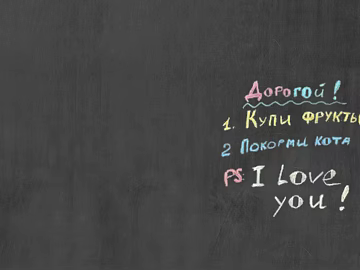 Дорогой!
1. Купи фрукты
2 Покорми кота
PS I Love
you!